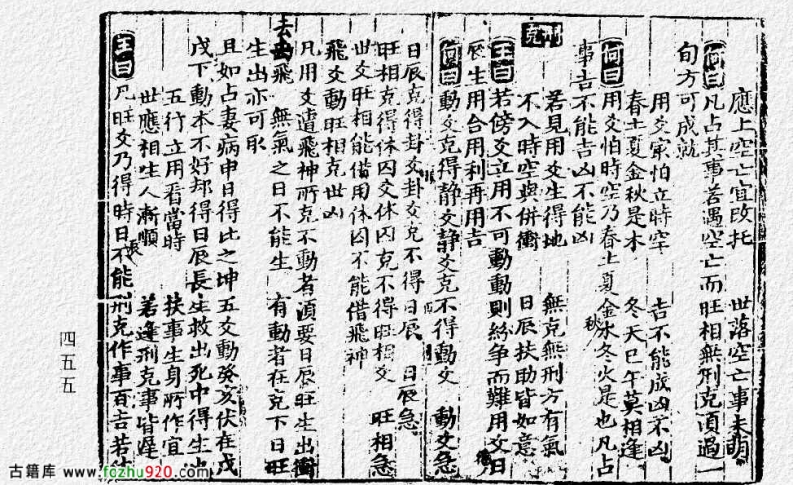 應上空亡宜改托　世落空亡事未萌
何曰凡占其事若遇空亡而旺相無刑克須過一
旬方可成就
用爻家怕立時空　吉不能成凶不凶
春土夏金秋是木　冬天巳午莫相逢
何曰用爻怕時空乃春土夏金秋木冬火是也凡占
事吉不能吉凶不能凶
刑克
若見用爻生得地　無克無刑方有氣
不入時空與併衝　日辰扶助皆如意
王曰若傍爻立用不可動動則紛争而難用爻日
辰生用合用利再用吉
何曰動爻克得静爻静爻克不得動爻　動爻急
日辰克得卦爻卦爻克不得日辰　日辰急
旺相克得休囚爻休囚克不得旺相爻　旺相急
世爻旺相能借用休囚不能借飛神
飛爻動旺相克世凶
凡用爻遭飛神所克不動者須要日辰旺生出衝
去飛　無氣之日不能生　有動者在克下日旺
生出亦可取
且如占妻病申日得比之坤五爻動癸亥伏在戊
戌下動本不好却得日辰長生救出死中得生也
五行立用看當時　扶事生身所作宜
世應相生人漸順　若逢刑克事皆遲
王曰凡旺爻乃得時日辰不能刑克作事百吉若
四五五
古籍库 www.fozhu920.com